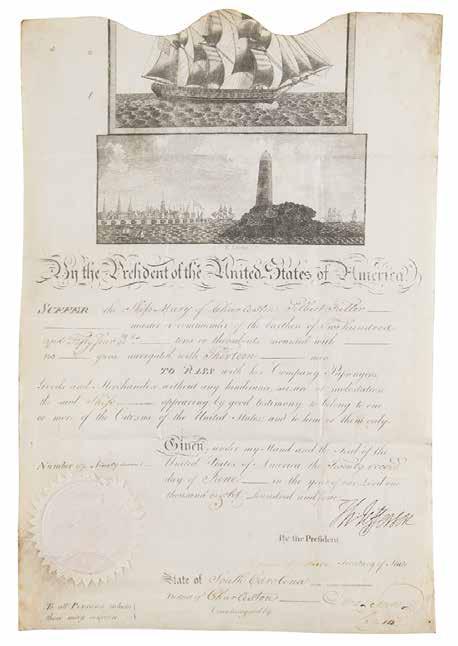 By the President of the United States of America
SUFFER the Ship Mary of Charleston
master or commander of the burthen of Two hundred
and Fifty four tons or thereabouts mounted with
no guns navigated with Thirteen men
TO PASS with her Company Passengers
Goods and Merchandize without any hindrance seizure or molestation
the said Ship appearing by good testimony to belong to one
or more of the Citizens of the United States and to him or them only.
Given under my Hand and the Seal of the
Number
United States of America the Twenty second
day of June in the year of our Lord one
thousand eight hundred and
Th: Jefferson
By the President
Secretary of State
State of South Carolina
District of Charleston
To all Persons whom
these may concern
Countersigned by